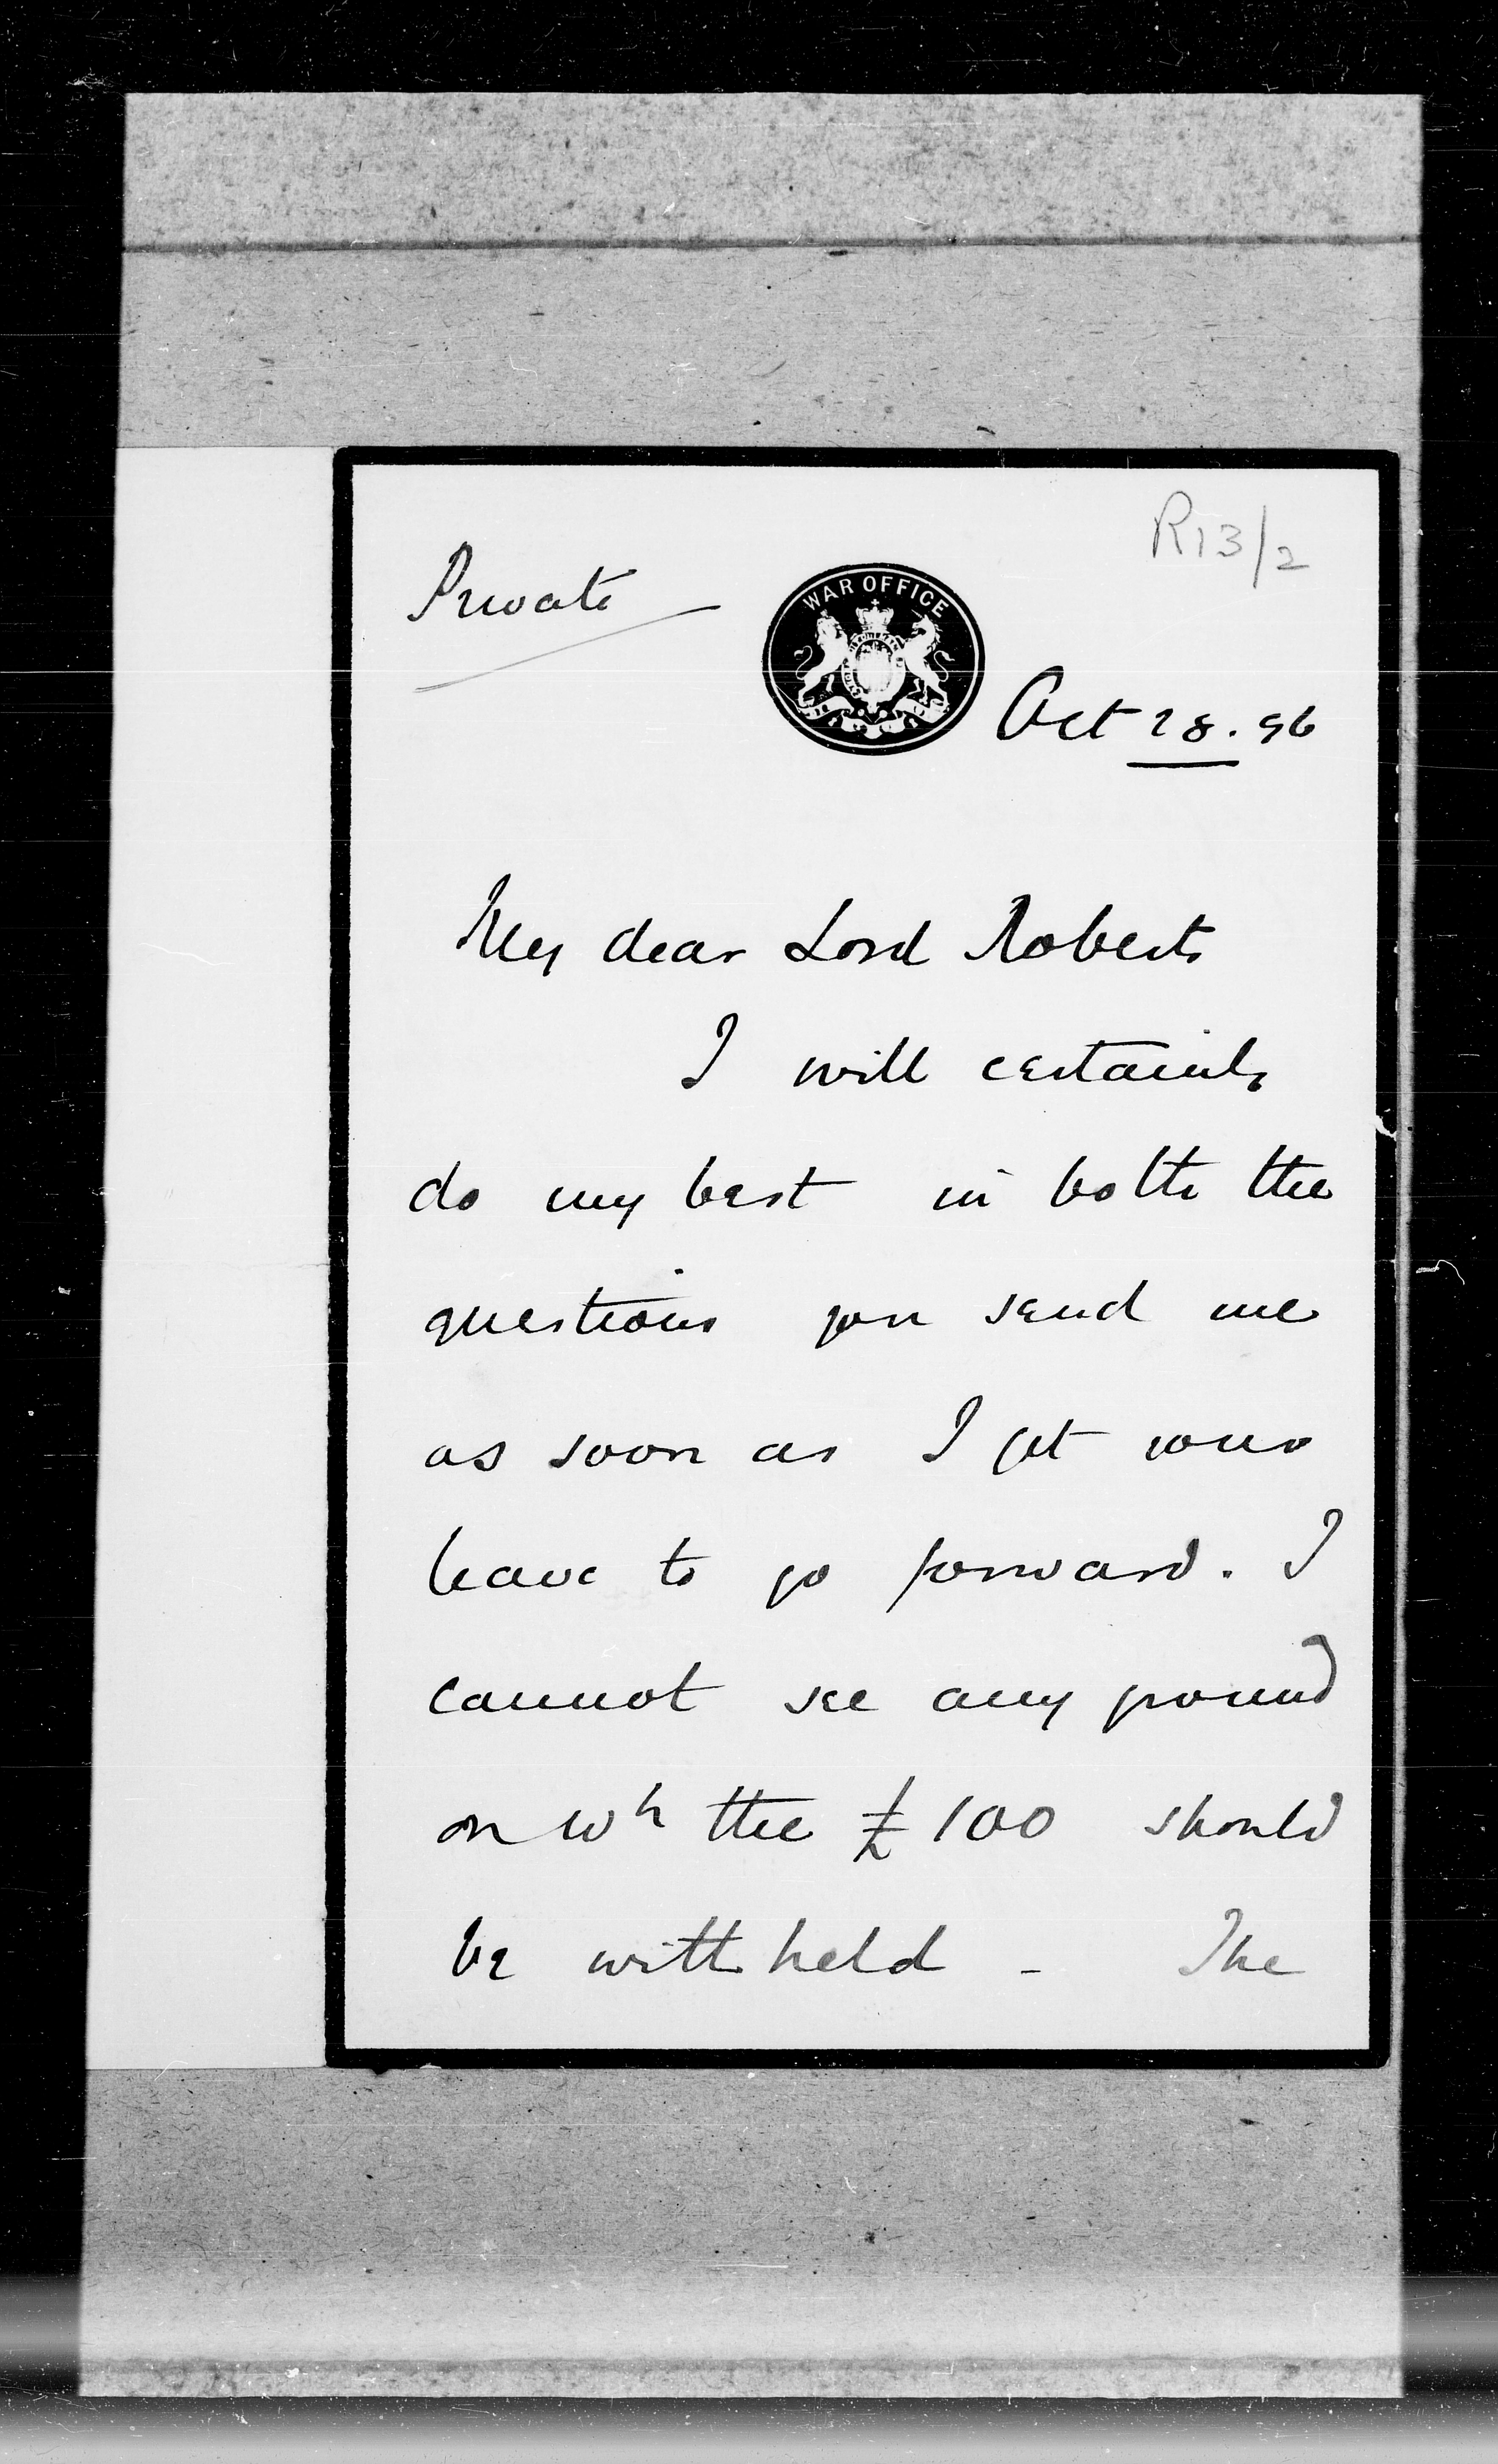 R13/2
Private
WAR OFFICE
Oct 28. 96
My dear Lord Roberts
I will certainly
do my best in both the
questions you send me
as soon as I get your
leave to go forward. I
cannot see any ground
on wh the £100 should
be withheld - The